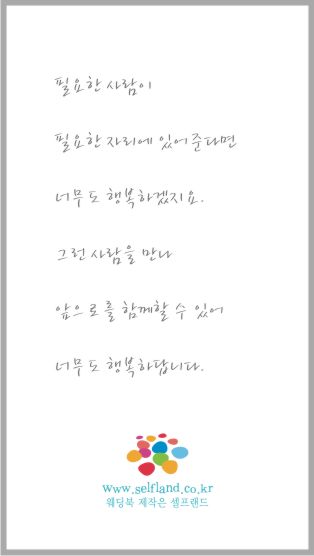 필요한 사람이
필요한 자리에 있어준다면
너무도 행복하겠지요.
그런 사람을 만나
앞으로를 함께할 수 있어
너무도 행복하답니다.
www.selfland.co.kr
웨딩북 제작은 셀프랜드